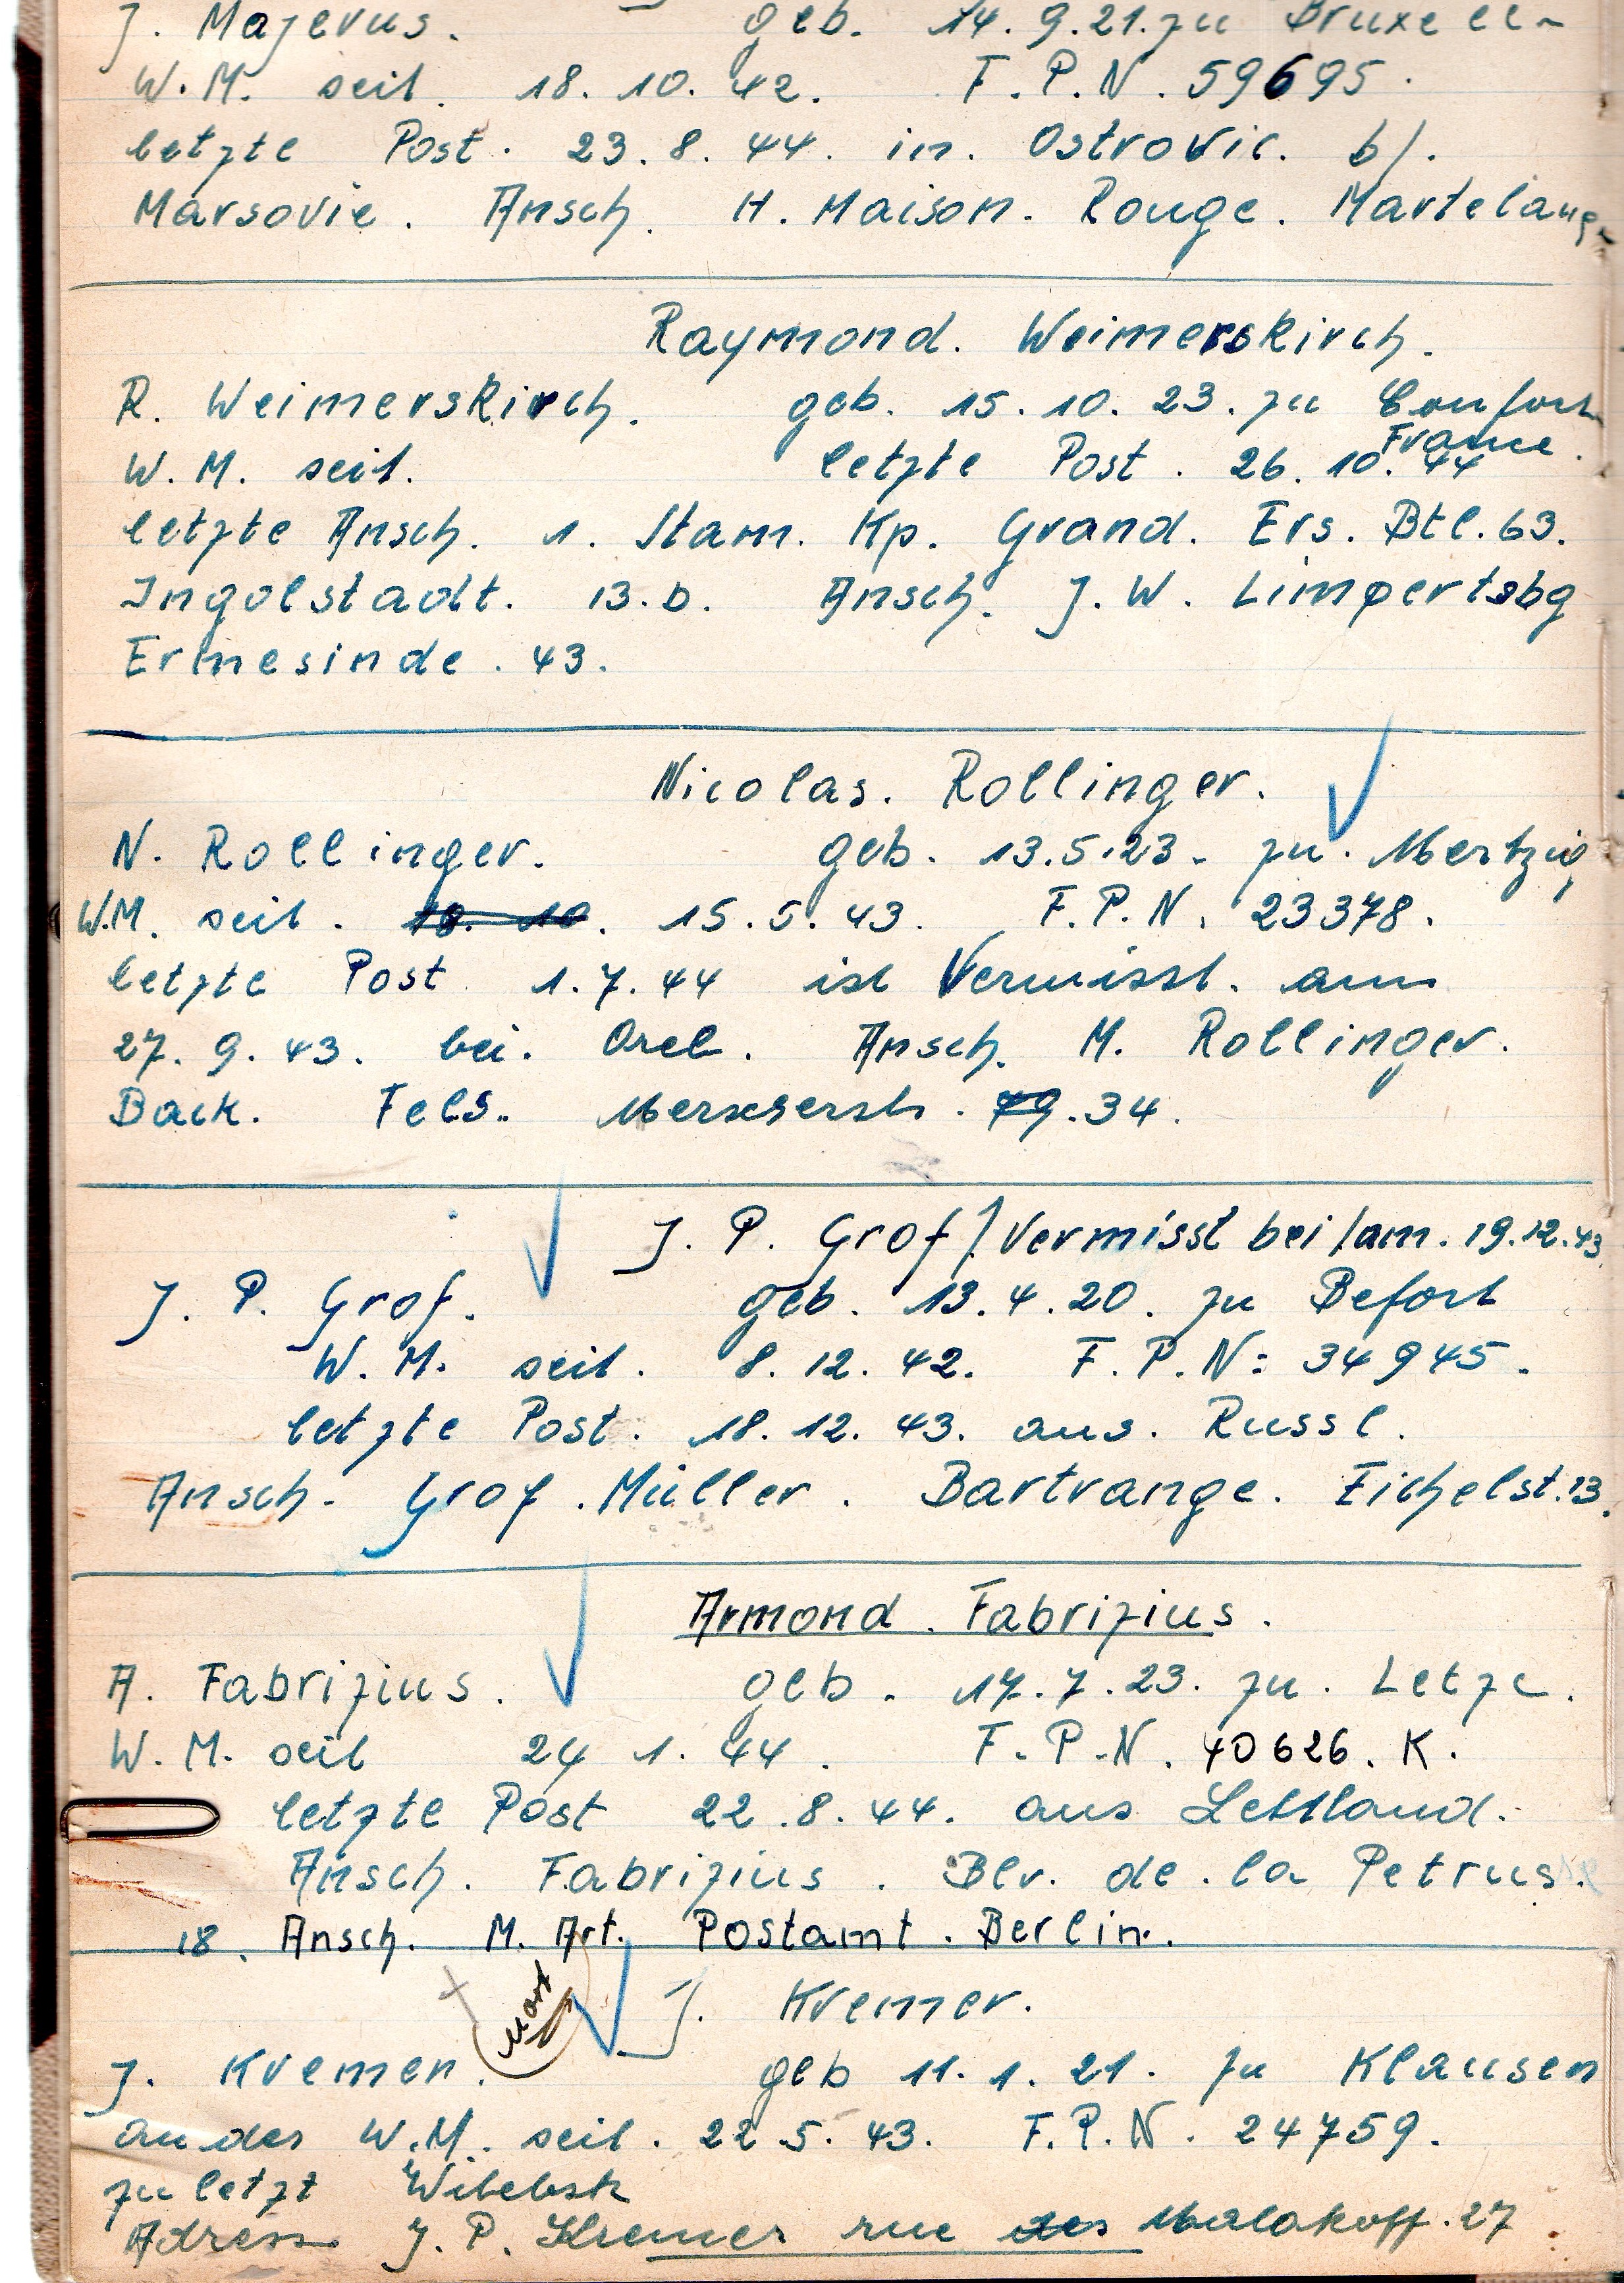 J. Majerus. geb. 14.9.21. zu Bruxell
W.M. seit. 18. 10. 42. F.P.N. 59695.
letzte Post. 23.8.44. in. Ostrovic. b/.
Marsovie. Ansch. H. Maison. Rouge. Martelange
Raymond. Weimerskirch.
R. Weimerskirch. geb. 15.10.23. zu
France.
W.M. seit. letzte Post. 26.10.44
letzte Ansch. 1. Stam. Kp. Grand. Ers. Btl. 63.
Ingolstadt. 13.b. Ansch. J. W. Limpertsbg
Ermesinde. 43.
Nicolas. Rollinger.
N. Rollinger. geb. 13.5.23. zu. Mertzig
W.M. seit. 18. 10. 15.5.43. F.P.N. 23378.
letzte Post 1.7.44 ist Vermisst. am
27. 9. 43. bei. Orel. Ansch. M. Rollinger.
Back. Fels. Merscherstr. 79. 34.
J. P. Grof / Vermisst bei / am. 19.12.43
J. P. Grof. geb. 13.4.20. zu Befort
W.M. seit. 8.12.42. F.P.N: 34945.
letzte Post. 18.12.43. aus. Russl.
Ansch. Grof. Müller. Bartrange. Eichelst. 13.
Armond. Fabrizius.
A. Fabrizius. geb. 17.7.23. zu. Letze.
W.M. seit 24 1. 44. F.P.N. 40626. K.
letzte Post 22.8.44. aus Lettland.
Ansch. Fabrizius. Blv. de. la Petruss.
18. Ansch. M. Art. Postamt. Berlin.
mort
J. Kremer.
J. Kremer. geb 11.1.21. zu Klausen
an der W.M. seit. 22 5. 43. F.P.N. 24759.
zuletzt Witebsk
Adress J. P. Kremer rue des Malakoff. 27